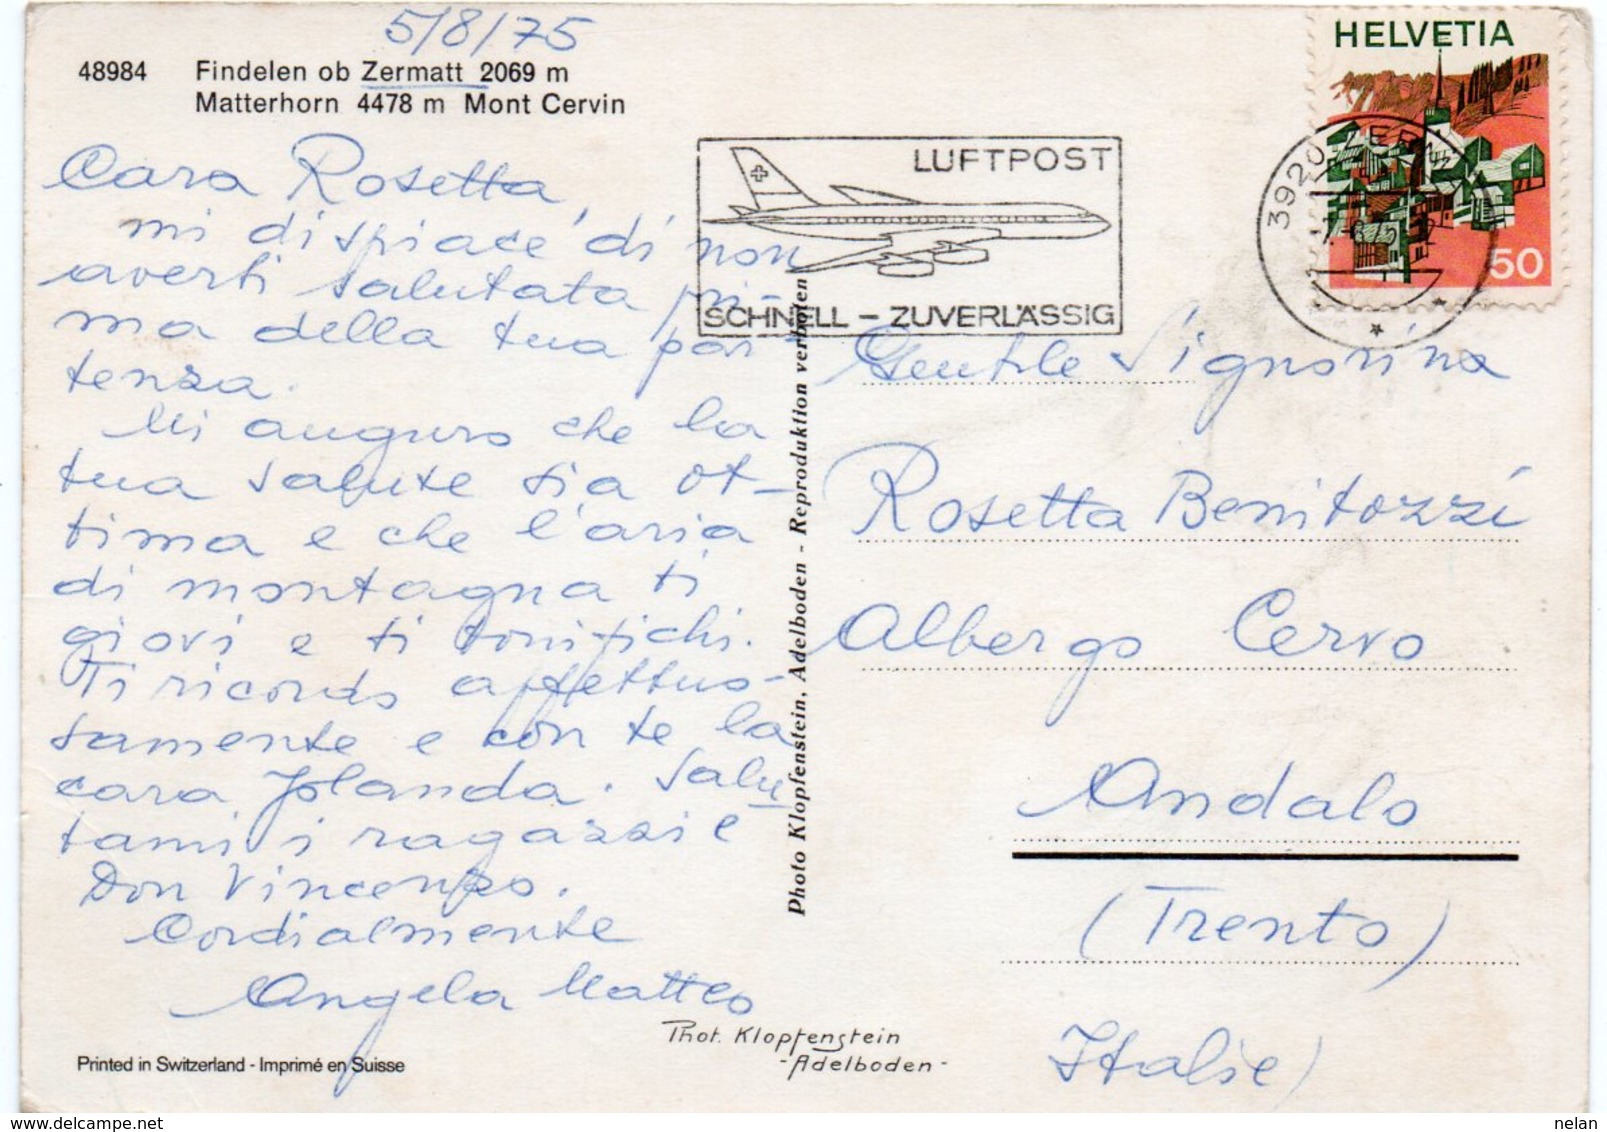 5/8/75
48984 Findelen ob Zermatt 2069 m
Matterhorn 4478 m Mont Cervin
Cara Rosetta,
mi dispiace di non
averti salutata pri-
ma della tua par-
tenza.
Mi auguro che la
tua salute sia ot-
tima e che l'aria
di montagna ti
giovi e ti tonifichi.
Ti ricordo affettuo-
samente e con te la
cara Jolanda. Salu
tami i ragazzi e
Don Vincenzo.
Cordialmente
Angela Matteo
Printed in Switzerland - Imprimé en Suisse
Phot. Klopfenstein
-Adelboden-
Photo Klopfenstein, Adelboden - Reproduktion verboten
LUFTPOST
SCHNELL - ZUVERLÄSSIG
HELVETIA
50
3920 ZERM
Gentile Signorina
Rosetta Benitozzi
Albergo Cervo
Andalo
(Trento)
Italie)
nelan